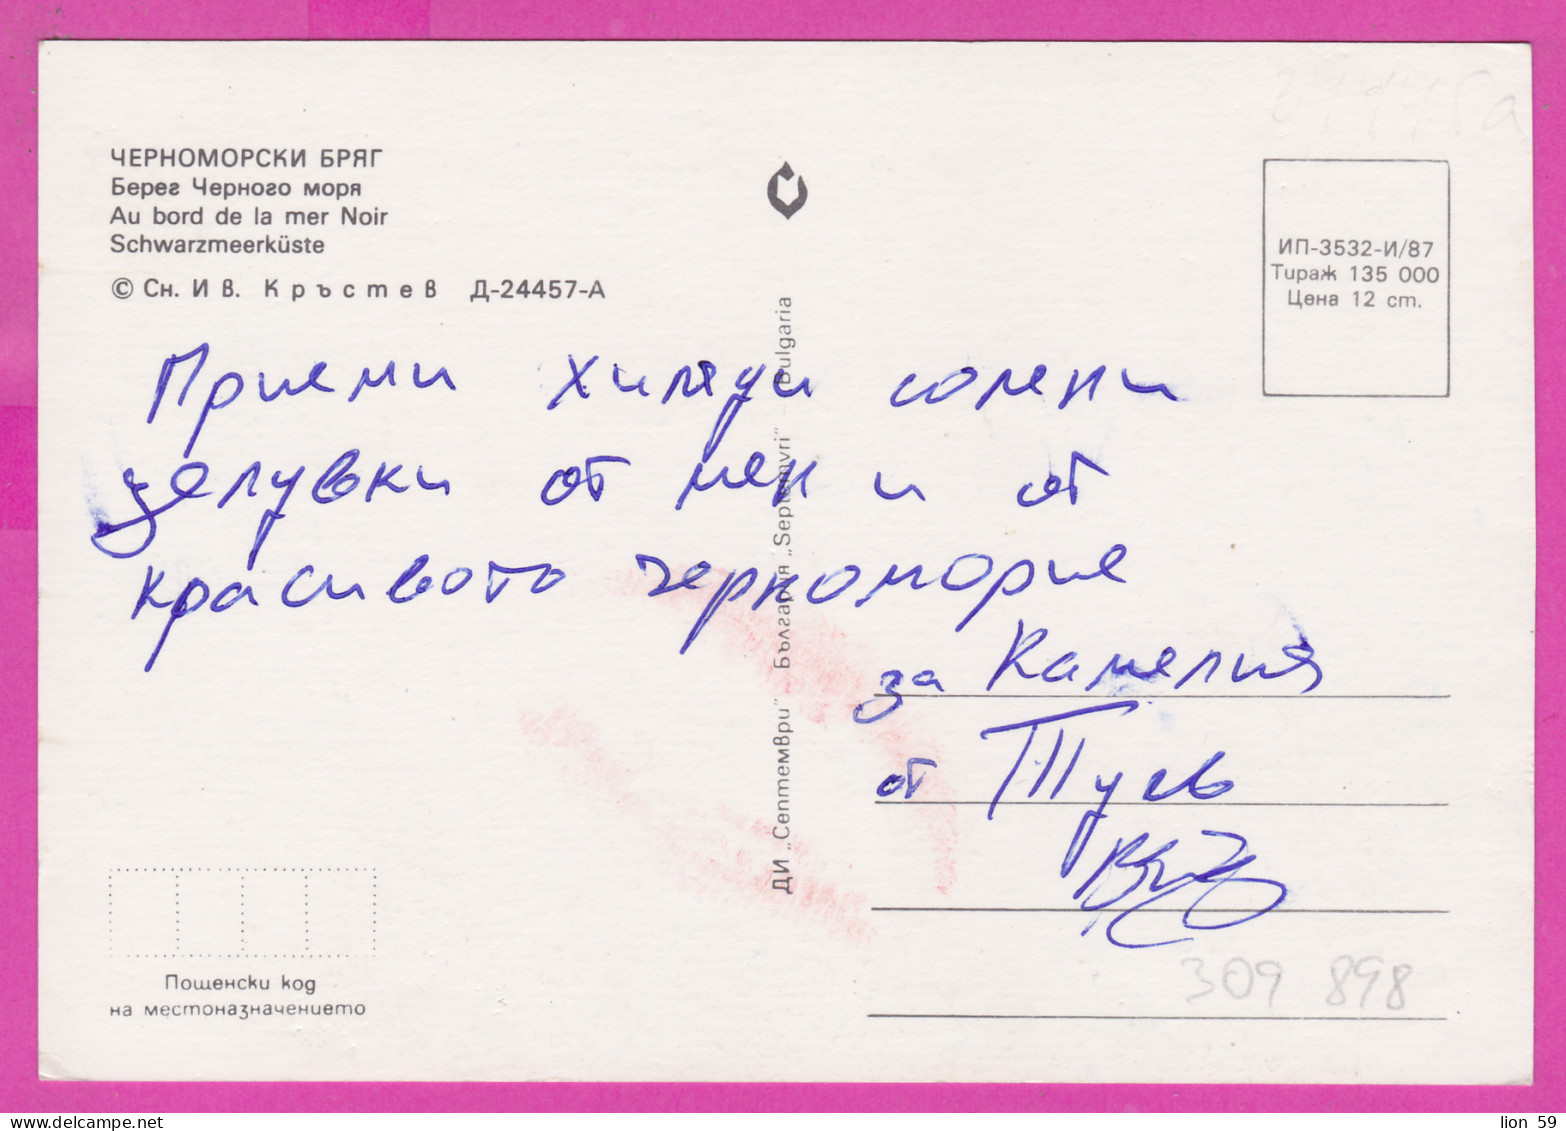 ЧЕРНОМОРСКИ БРЯГ
Берег Черного моря
Au bord de la mer Noir
Schwarzmeerküste
© Сн. Ив. Кръстев Д-24457-А
ИП-3532-И/87
Тираж 135 000
Цена 12 ст.
Приеми хиляди солени
целувки от мен и от
красивото черноморие
за Камелия
от
ДИ „Септември" България „Septemvri" Bulgaria
309 898
Пощенски код
на местоназначението
lion 59
www.delcampe.net